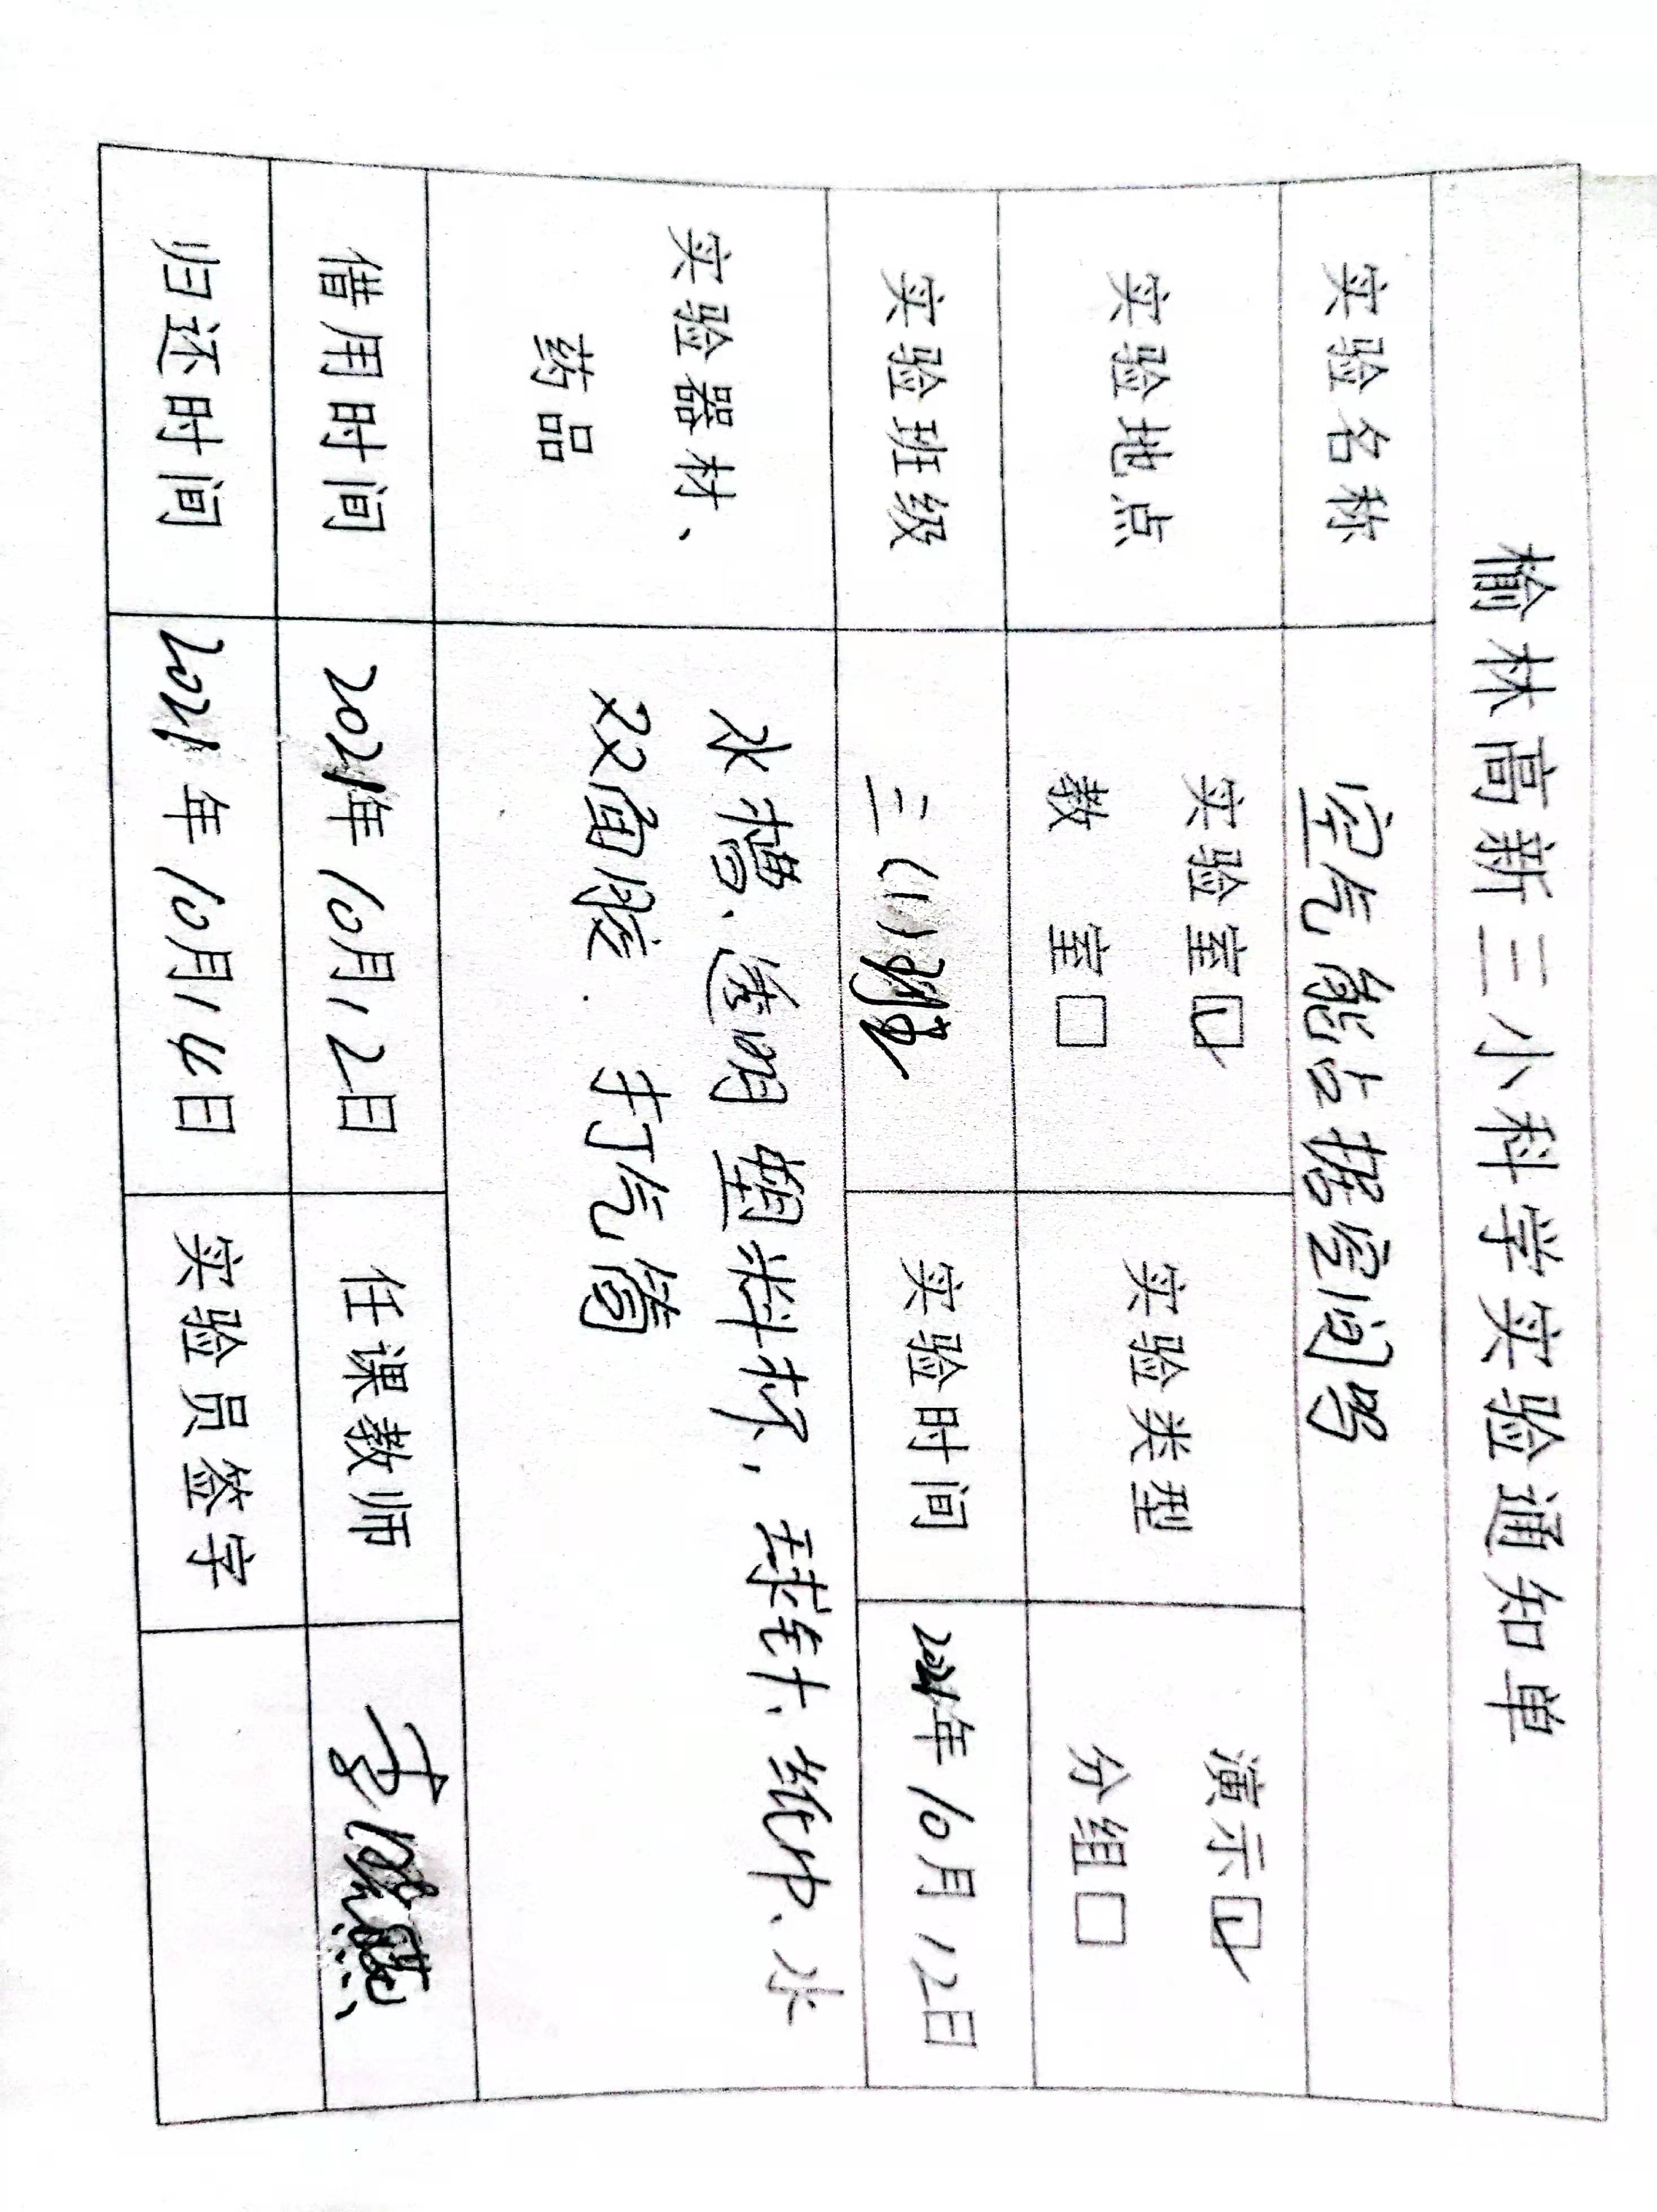 榆林高新三小科学实验通知单
实验名称 空气能占据空间吗
实验地点 实验室☑ 教 室□ 实验类型 演示☑ 分组□
实验班级 三(1)班 实验时间 2021年10月12日
实验器材、药品 水槽、透明塑料杯,球针、纸巾、水
双面胶. 打气筒
借用时间 2021年10月12日 任课教师 李
归还时间 2021年10月14日 实验员签字